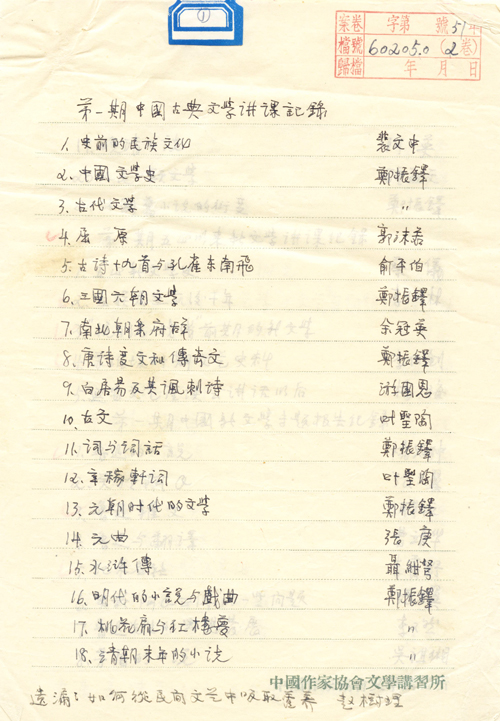 ①
案卷 字第 號 51年
檔號 60205.0 (2卷)
歸檔 年 月 日
第一期中國古典文学讲课記録
1. 史前的民族文化 裴文中
2. 中國文学史 鄭振鐸
3. 古代文学 〃
4. 屈 原 郭沫若
5. 古詩十九首与孔雀东南飛 俞平伯
6. 三國六朝文学 鄭振鐸
7. 南北朝樂府辞 余冠英
8. 唐詩变文和傳奇文 鄭振鐸
9. 白居易及其諷刺诗 游國恩
10. 古文 叶聖陶
11. 词与词話 鄭振鐸
12. 辛稼軒词 叶聖陶
13. 元朝时代的文学 鄭振鐸
14. 元曲 張 庚
15. 水浒傳 聶紺弩
16. 明代的小說与戲曲 鄭振鐸
17. 桃花扇与红樓夢 〃
18. 清期末年的小说 〃
中國作家協會文學講習所
遗漏：如何從民间文艺中吸取营养 赵樹理